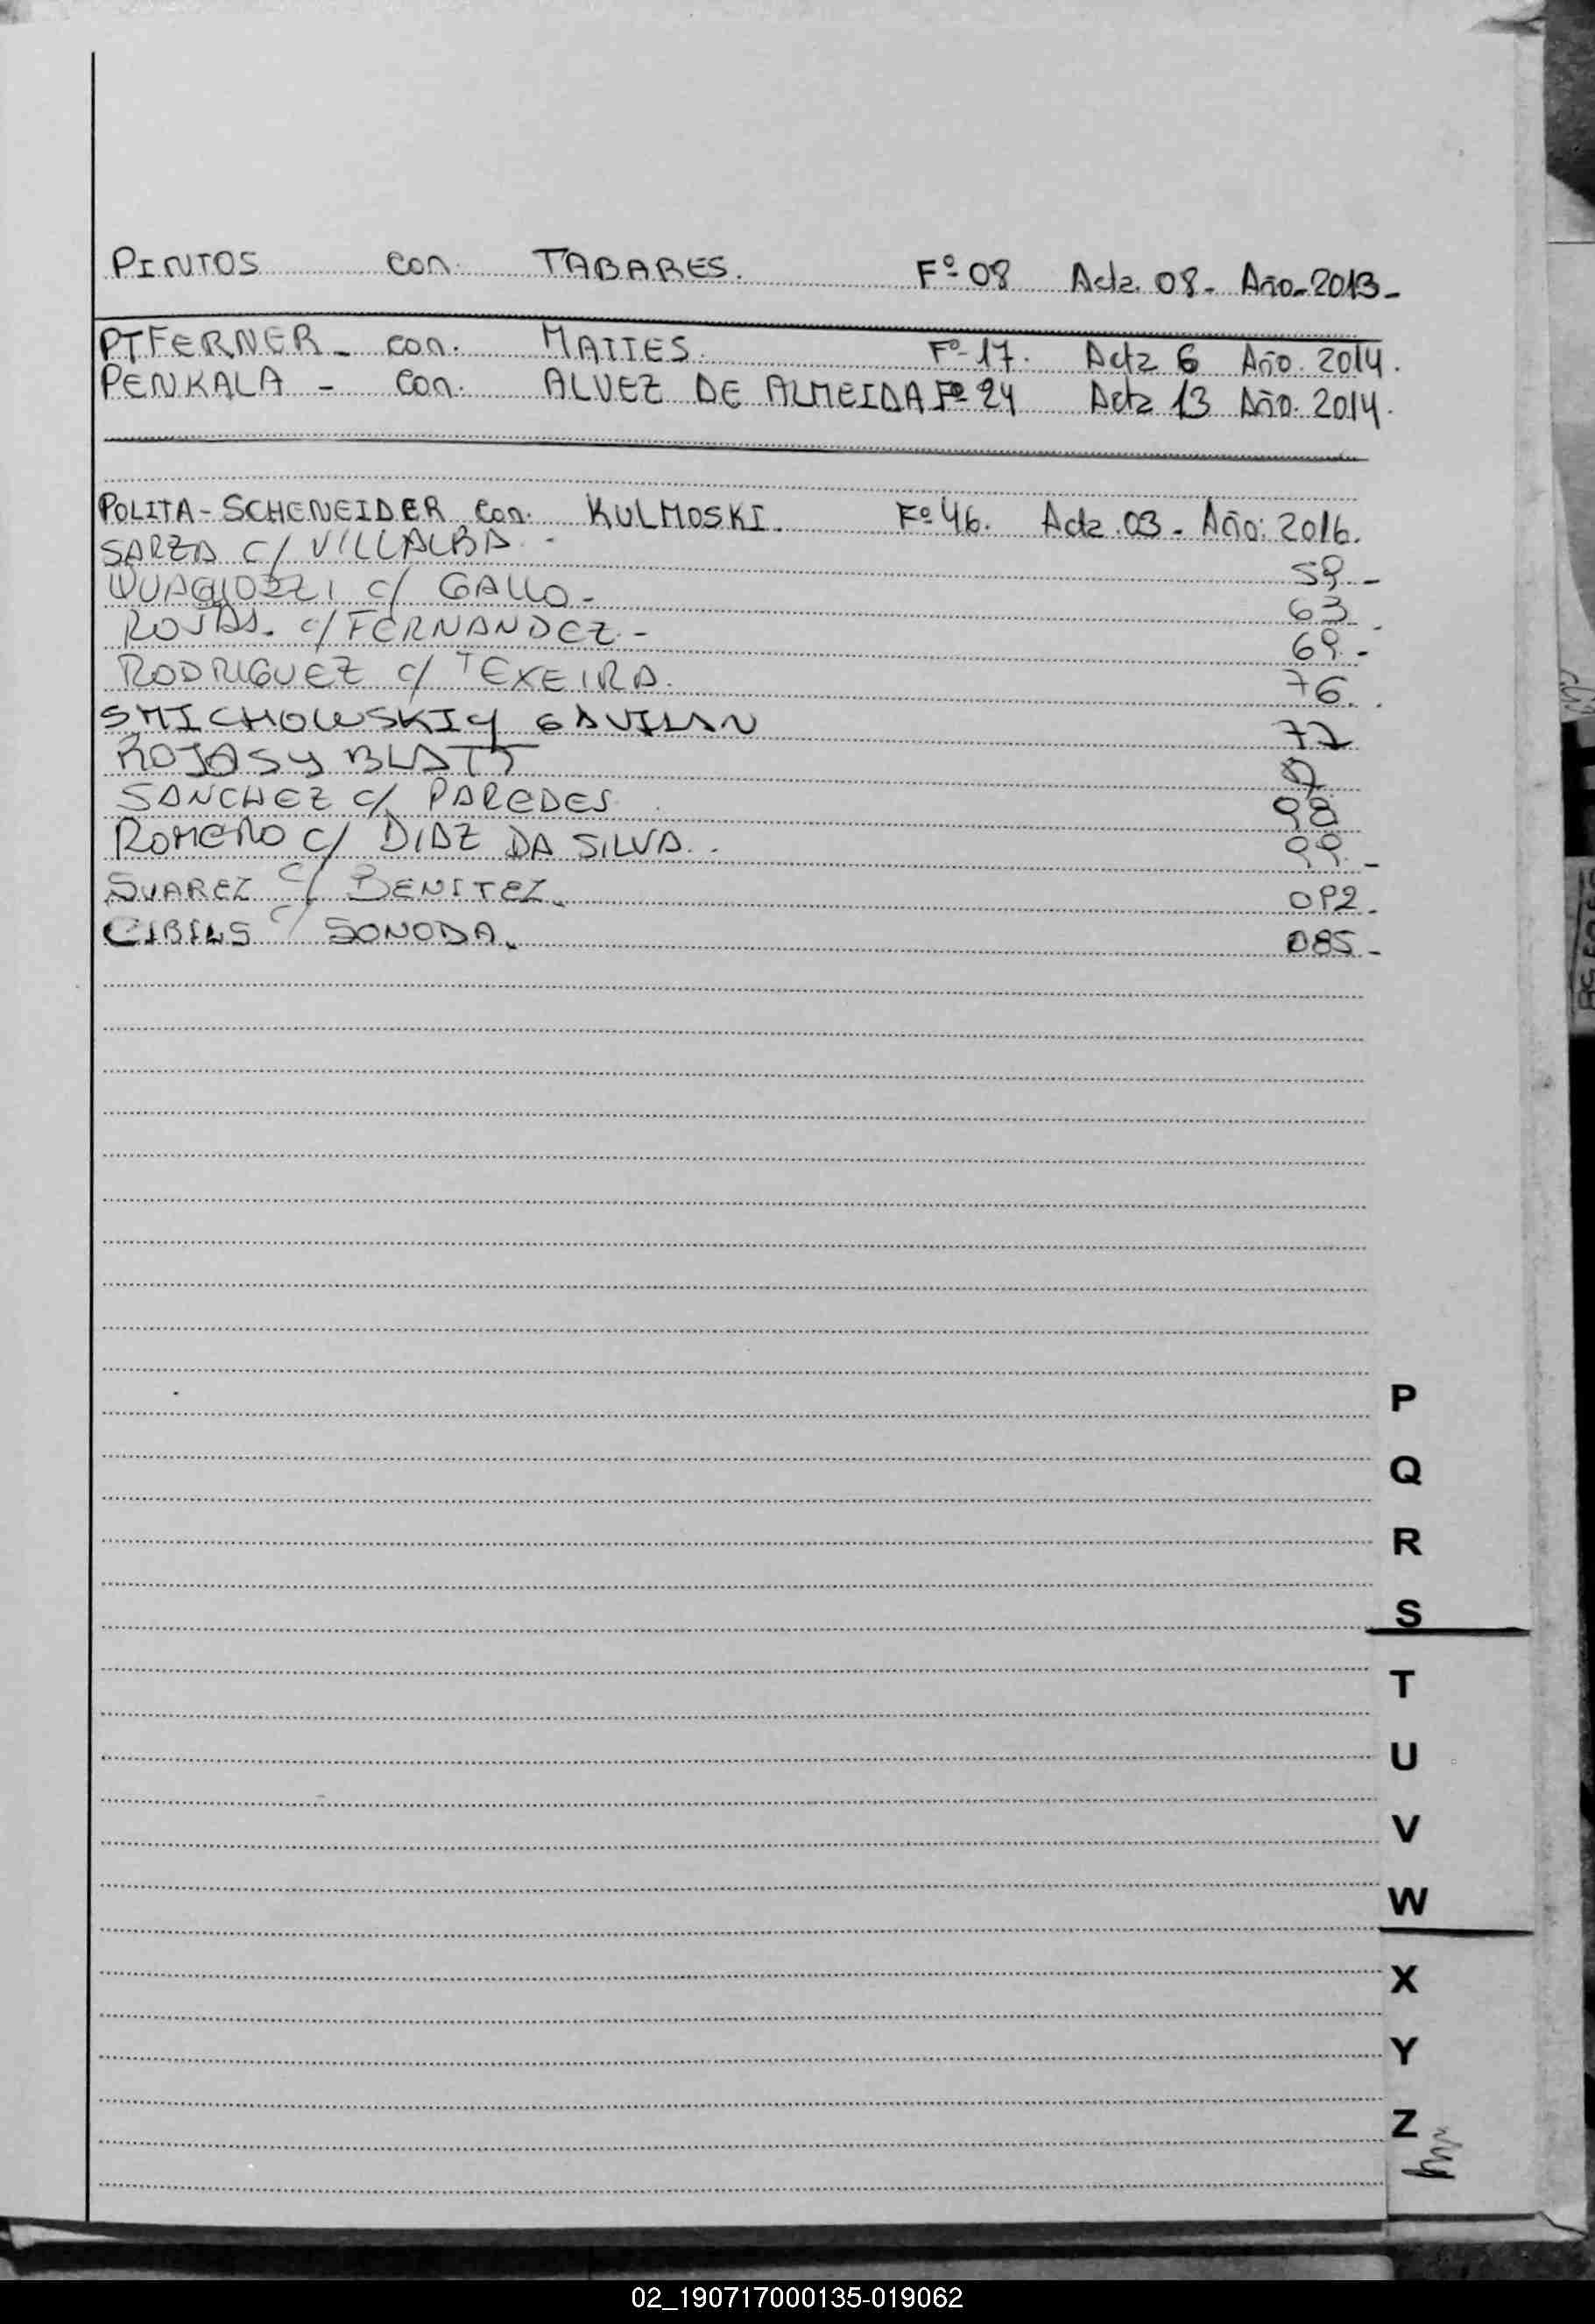 PINTOS con. TABARES. Fº 08 Acta. 08 - Año - 2013 -
PTFERNER - con. MATTES. Fº 17. Acta 6 Año. 2014.
PENKALA - con. ALVEZ DE ALMEIDA Fº 24 Acta 13 Año. 2014.
POLITA - SCHENEIDER con. KULMOSKI. Fº 46. Acta .03 - Año: 2016.
SARZA c/ VILLALBA - 59 -
QUAGLIOZZI c/ GALLO - 63 .
ROJAS. c/ FERNANDEZ - 69 -
RODRIGUEZ c/ TEXEIRA. 76 .
SMICHOWSKI y GAVILAN 77
ROJAS y BLATT
SANCHEZ c/ PAREDES 98
ROMERO c/ DIAZ DA SILVA. 99 -
SUAREZ c/ BENITEZ. 092 -
CIBILS c/ SONODA. 085 -
P
Q
R
S
T
U
V
W
X
Y
Z
02_190717000135-019062